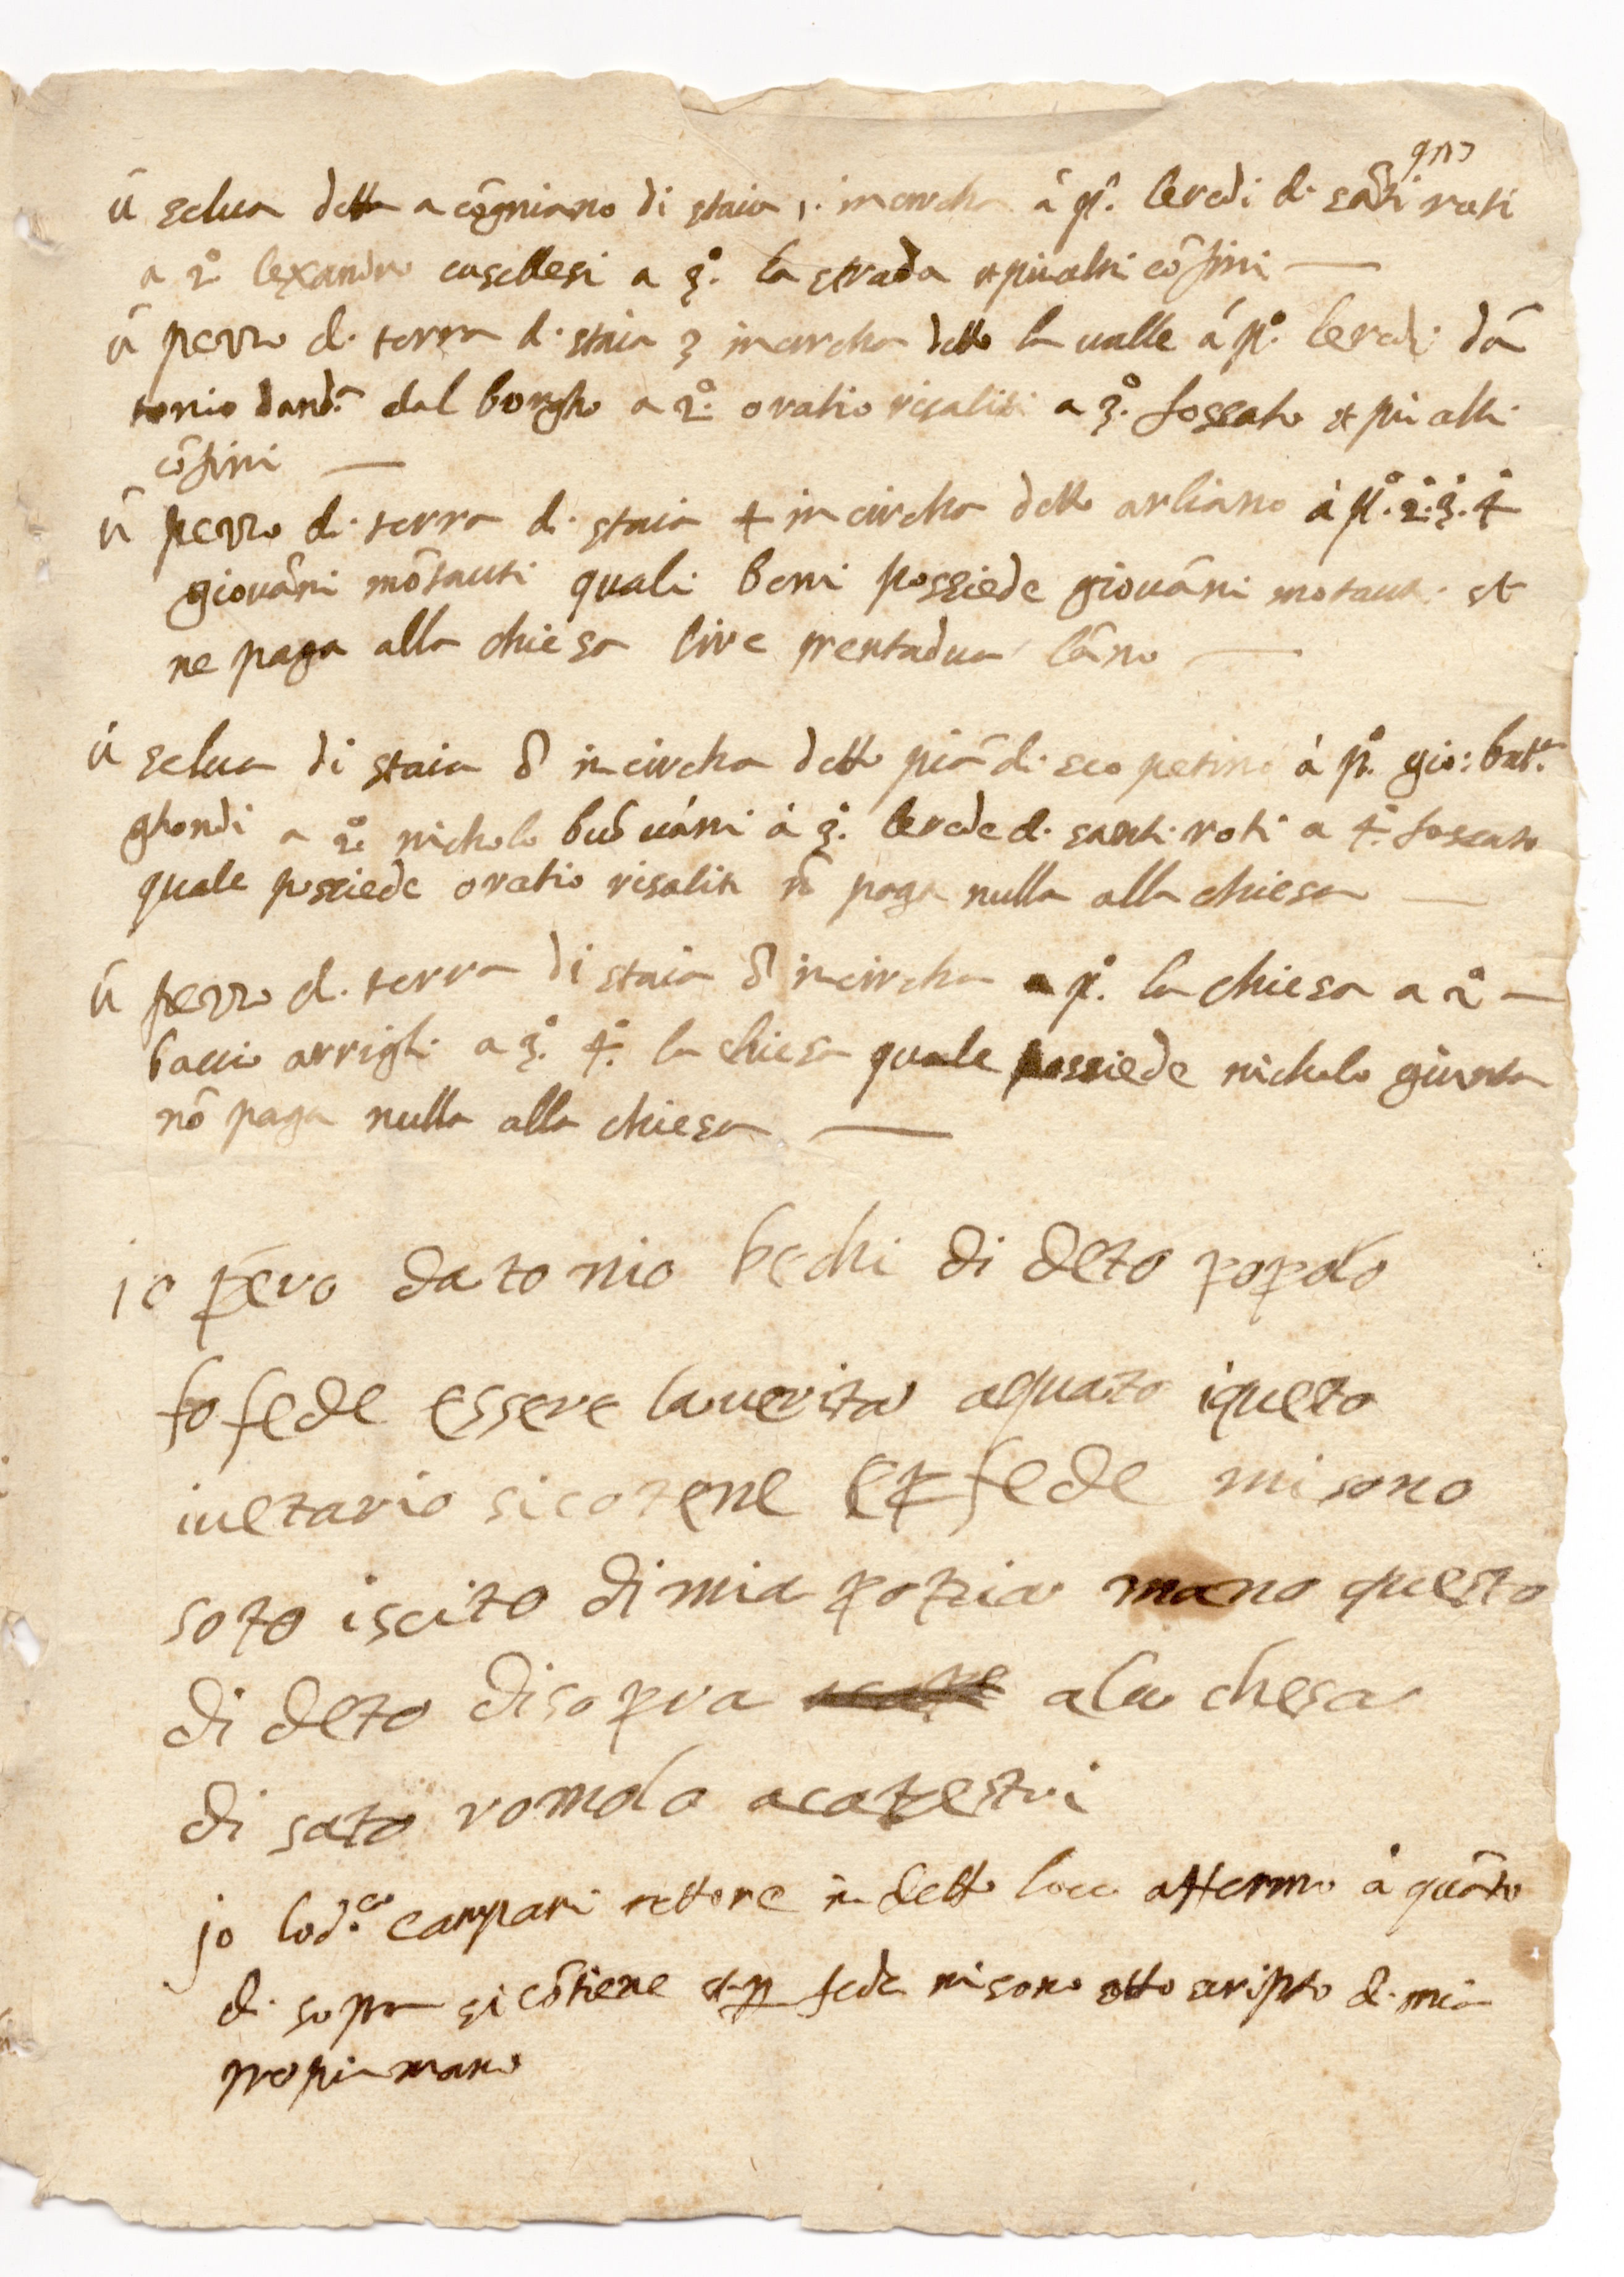 ū selva detta a cōgniano di staia 1. incircha á pº. leredi di sāti roti
a 2º lexandro casellesi a 3º. la strada et piu altri cōfini —
ū pezzo di terra di staia 3 incircha detto la valle á pº. leredi dā
tonio dandª. dal borgho a 2º. oratio risaliti a 3º. fossato et piu altri
cōfini —
ū pezzo di terra di staia 4 incircha detto arliano á pº. 2º. 3º. 4º
giovāni mōtauti quali beni possiede giovāni motauti et
ne paga alla chiesa lire trentadua lāno —
ū selva di staia 8 incircha detto piā di scopetino á pº. gio: batª.
ghondi a 2º nicholo á 3º. lerede di santi roti a 4º. fossato
quale possiede oratio risaliti nō paga nulla alla chiesa —
ū pezzo di terra di staia 8 incircha a pº. la chiesa a 2º
baccio arrighi a 3º. 4º. la chiesa quale possiede nicholo giunta
nō paga nulla alla chiesa —
io pero datonio bechi di deto popolo
fo fede essere la verita aquato iqueto
ivetario sicotene e p fede mi sono
soto iscito di mia potria mano questo
di deto disopra ala chesa
di sato romolo acatestri
jo lod.co campari rettore in detto loco affermo á quāto
di sopra si cōtiene et p fede mi sono sotto scripto di mia
propia mano